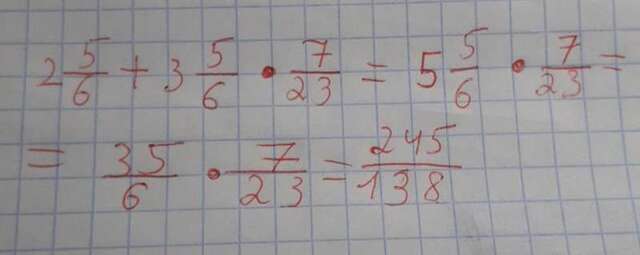 2 5/6 + 3 5/6 • 7/23 = 5 5/6 • 7/23 =
= 35/6 • 7/23 = 245/138